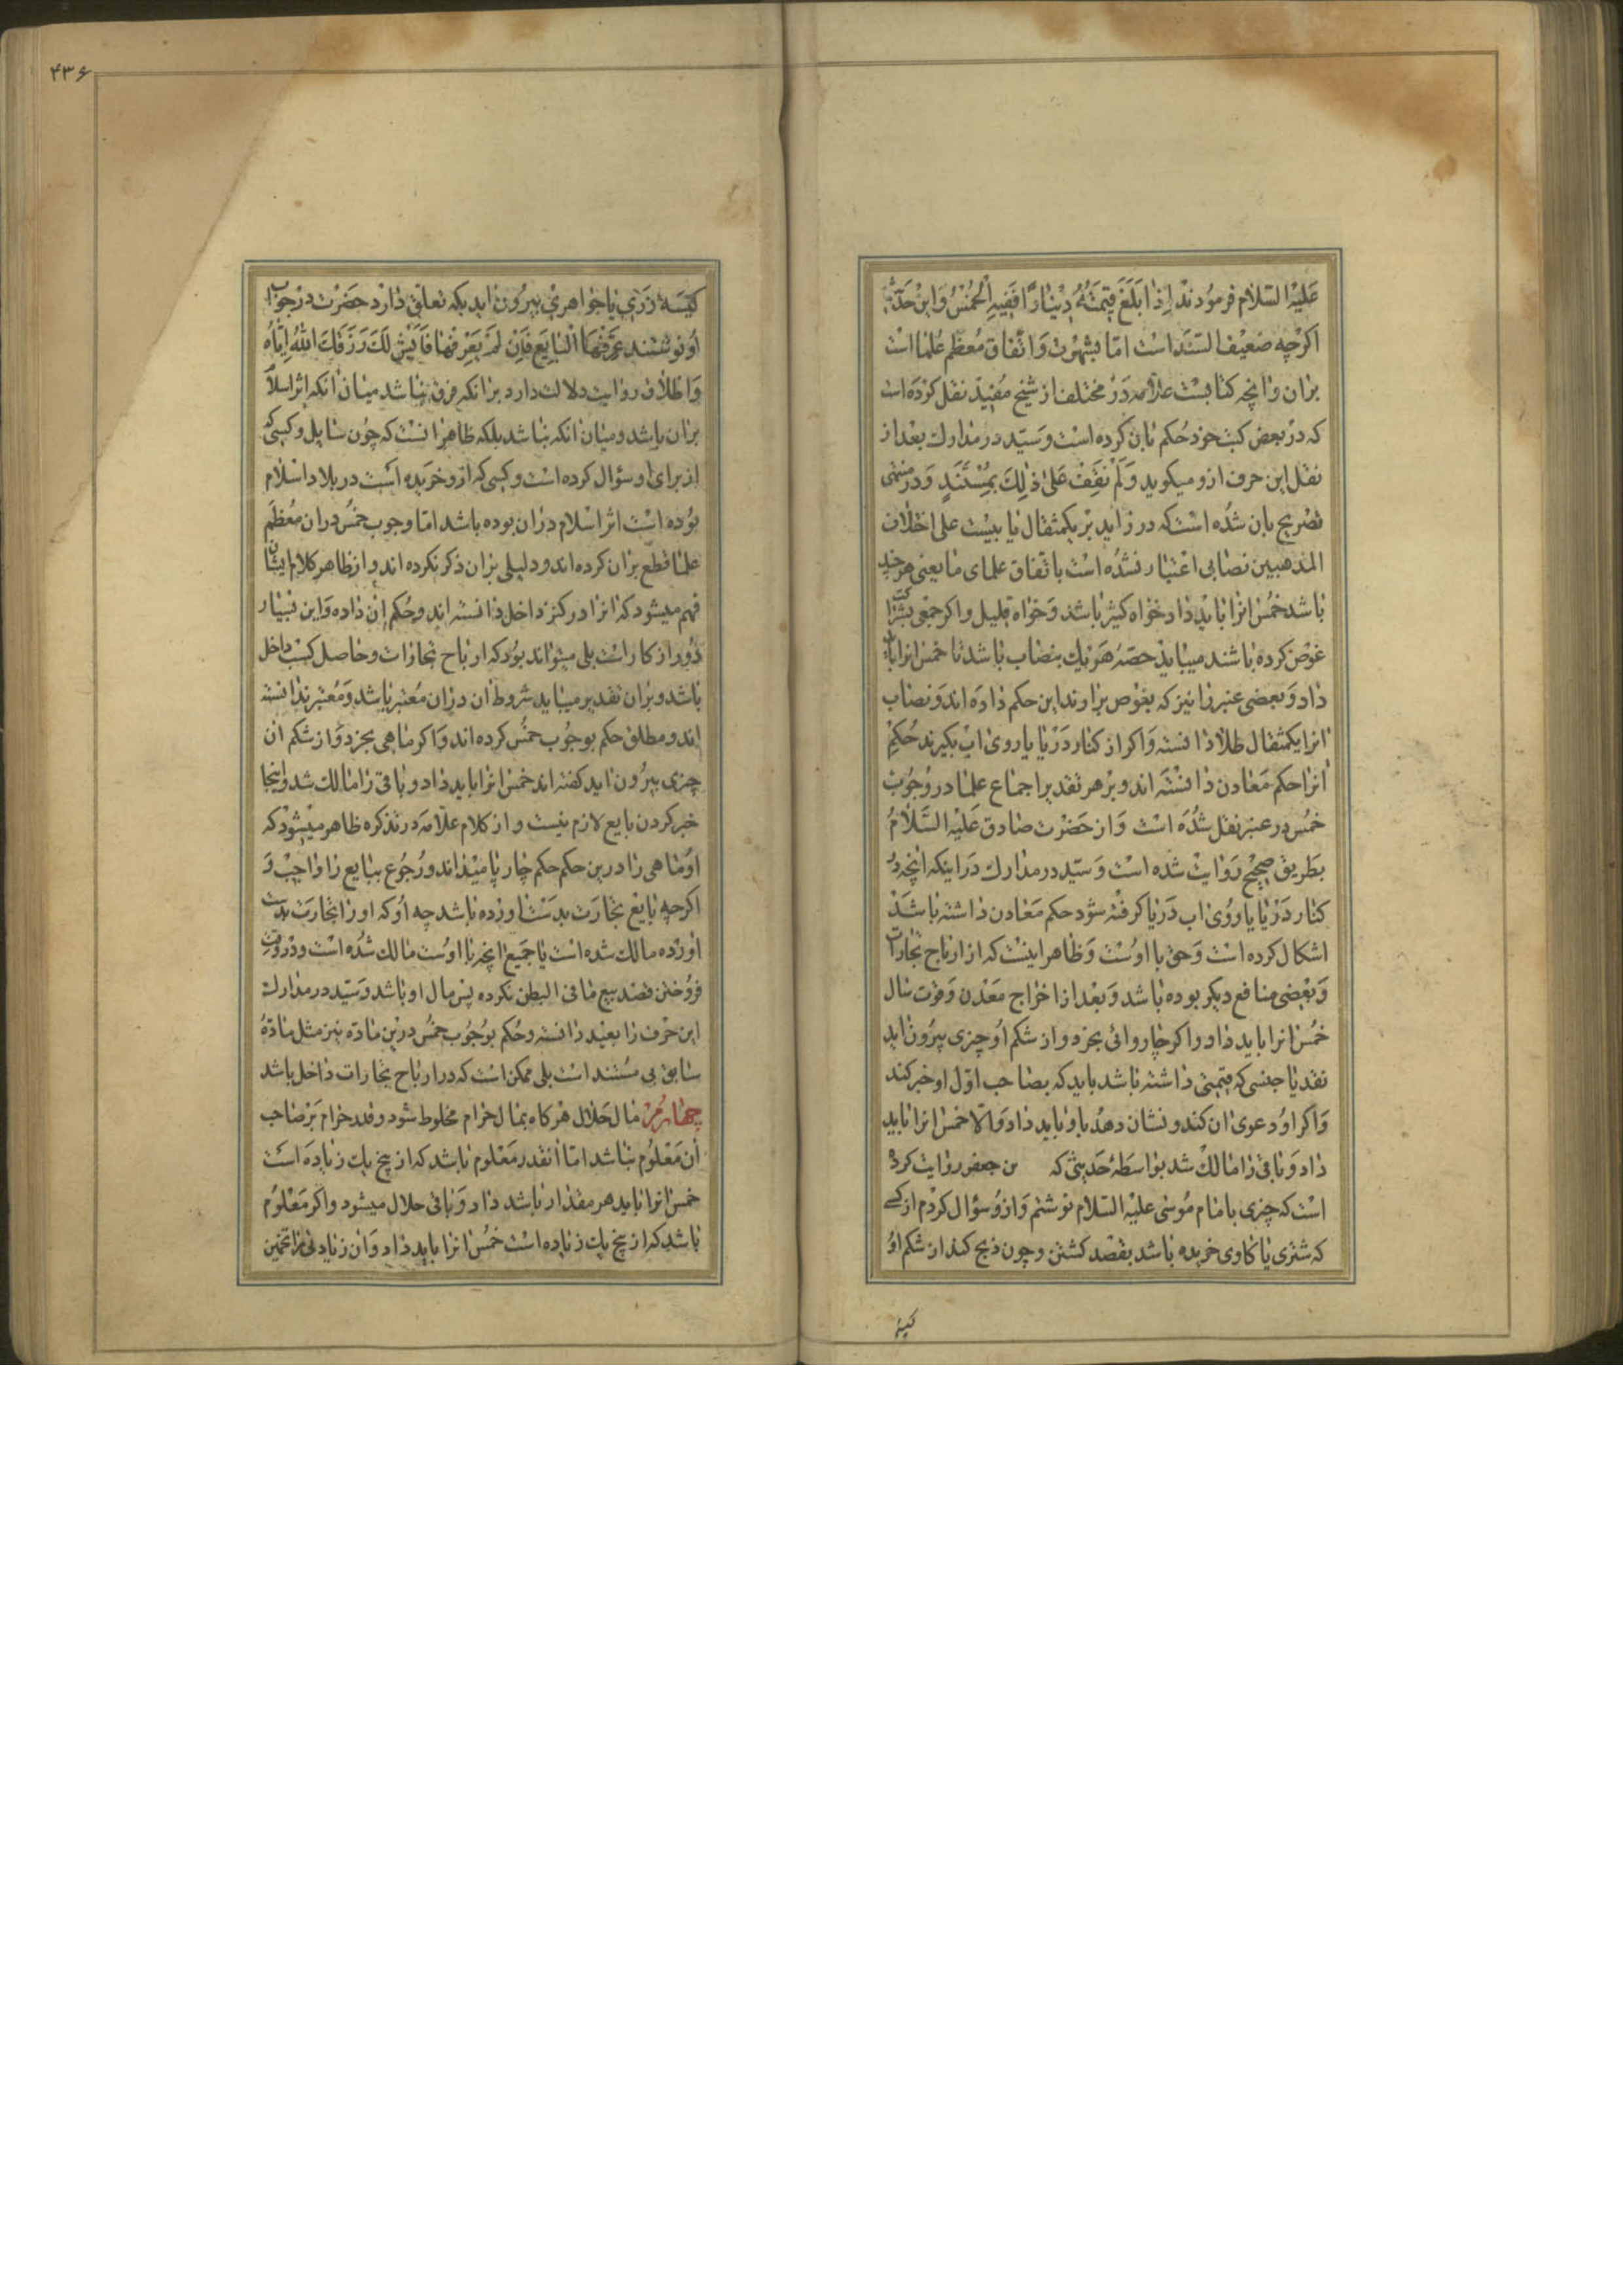 علیه السلام فرمودند اذا بلغ قیمته دینارا ففیه الخمس و این حدیث
اکرچه ضعیف السند است اما بشهرت و اتفاق معظم علما است
بران و انچه کتابیست علامه در مختلف از شیخ مفید نقل کرده است
که در بعض کتب خود حکم بان کرده است و سید در مدارک بعد از
نقل این حرف ازو میکوید و لم نقف علی ذلک بمستند و در منتهی
تصریح بان شده است که در زاید بر یکمثقال یا بیست علی اختلاف
المذهبین نصابی اعتبار نشده است باتفاق علمای ما یعنی هر چند
باشد خمس انرا باید داد خواه کثیر باشد و خواه قلیل و اکر جمعی بشراکت
غوص کرده باشند میباید حصهٔ هریک بنصاب باشد تا خمس انرا باید
داد و بعضی عنبر را نیز که بغوص براورند این حکم داده اند و نصاب
انرا یکمثقال طلا دانسته و اکر از کنار دریا یا روی اب بکیرند حکم
انرا حکم معادن دانسته اند و بر هر تقدیر اجماع علما در وجوب
خمس در عنبر نقل شده است و از حضرت صادق علیه السلام
بطریق صحیح روایت شده است و سید در مدارک در اینکه انچه در
کنار دریا یا روی اب دریا کرفته شود حکم معادن داشته باشد
اشکال کرده است و حق با اوست و ظاهر اینست که از ارباح تجارات
و بعضی منافع دیکر بوده باشد و بعد از اخراج معدن و قوت سال
خمس انرا باید داد و اکر چاروائی بخرد و از شکم او چیزی بیرون اید
نقد یا جنسی که قیمتی داشته باشد باید که بصاحب اول او خبر کند
و اکر او دعوی ان کند و نشان دهد باو باید داد و الا خمس انرا باید
داد و باقی را مالک شد بواسطهٔ حدیثی که بن جعفر روایت کرده
است که چیزی بامام موسی علیه السلام نوشتم و ازو سؤال کردم از کسی
که شتری یا کاوی خریده باشد بقصد کشتن و چون ذبح کند از شکم او
کیسهٔ
۴۳۶
کیسهٔ زری یا جواهری بیرون اید بکه تعلق دارد حضرت در جواب
او نوشتند عرفها البایع فان لم یعرفها فالشیئ لک رزقک الله ایاه
و اطلاق روایت دلالت دارد برانکه فرق نباشد میان انکه اثر اسلام
بران باشد و میان انکه نباشد بلکه ظاهر انست که چون سایل و کسی که
از برای او سؤال کرده است و کسی که ازو خریده است در بلاد اسلام
بوده است اثر اسلام دران بوده باشد اما وجوب خمس دران معظم
علما قطع بران کرده اند و دلیلی بران ذکر نکرده اند و از ظاهر کلام ایشان
فهم میشود که انرا در کنز داخل دانسته اند و حکم ان داده و این بسیار
دور از کار است بلی میتواند بود که ارباح تجارات و حاصل کسب داخل
باشد و بران تقدیر میباید شروط ان دران معتبر باشد و معتبر ندانسته
اند و مطلق حکم بوجوب خمس کرده اند و اکر ماهی بخرد و از شکم ان
چیزی بیرون اید کفته اند خمس انرا باید داد و باقی را مالک شد و اینجا
خبر کردن بایع لازم نیست و از کلام علامه در تذکره ظاهر میشود که
او ماهی را درین حکم حکم چارپا میداند و رجوع ببایع را واجب و
اکرچه بایع تجارت بدست اورده باشد چه او که او را تجارت بدست
اورده مالک شده است یا جمیع انچه با اوست مالک شده است و در وقت
فروختن قصد بیع ما فی البطن نکرده پس مال او باشد و سید در مدارک
این حرف را بعید دانسته و حکم بوجوب خمس درین ماده نیز مثل مادهٔ
سابق بی مستند است بلی ممکن است که در ارباح تجارات داخل باشد
چهارم مال حلال هرکاه بمال حرام مخلوط شود و قدر حرام بر صاحب
ان معلوم نباشد اما انقدر معلوم باشد که از پنج یک زیاده است
خمس انرا باید هر مقدار باشد داد و باقی حلال میشود و اکر معلوم
باشد که از پنج یک زیاده است خمس انرا باید داد و ان زیادتی را تخمین